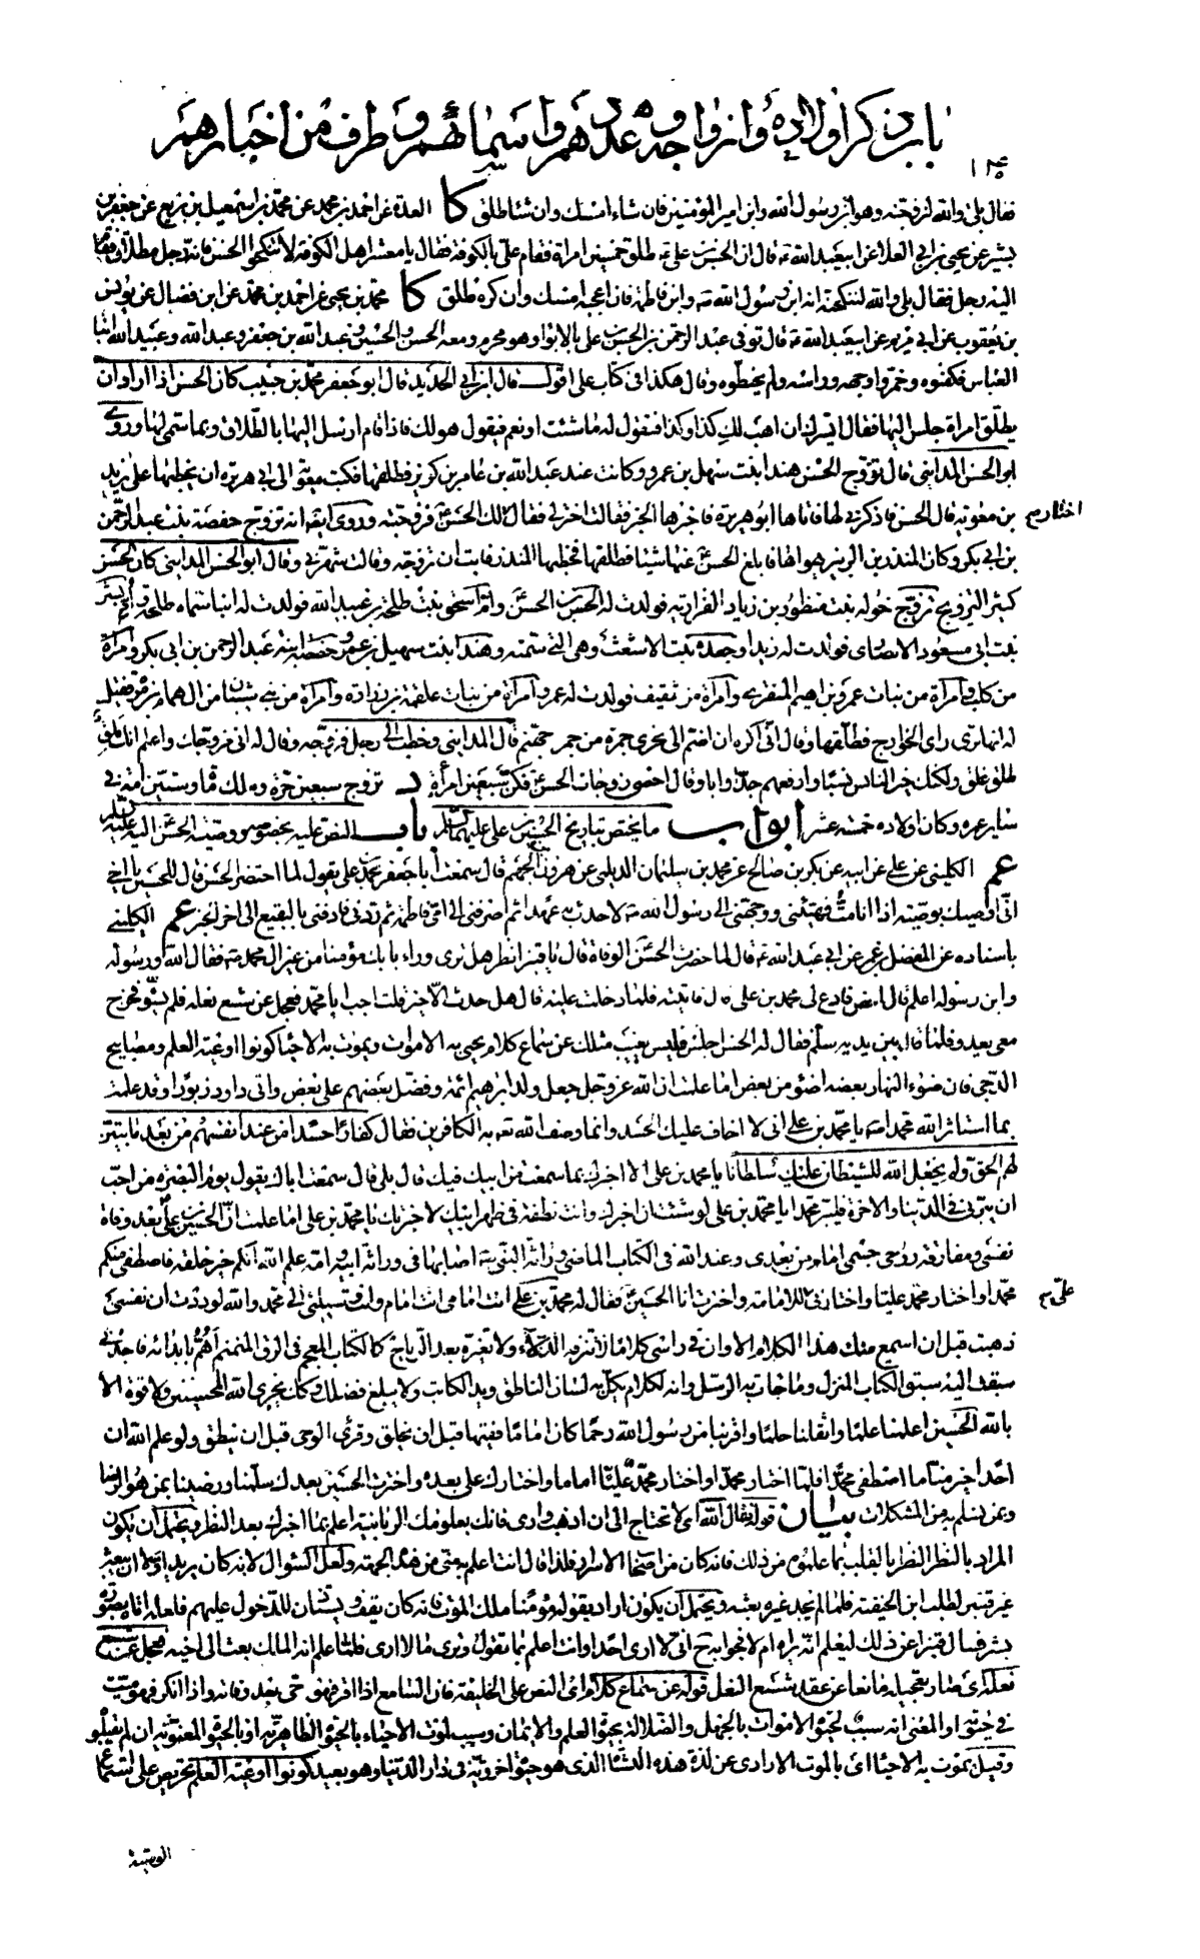 باب ذكر اولاده وازواجه وعددهم واسمائهم وطرف من اخبارهم
١٣٥
فقال بلى والله لنزوجنه وهو ابن رسول الله وابن امير المؤمنين فان شاء امسك وان شاء طلق كا العدة عن احمد بن محمد عن محمد بن اسمعيل بن بزيع عن جعفر بن
بشير عن يحيى بن ابى العلا عن ابيعبد الله ع قال ان الحسن بن على ع طلق خمسين امراة فقام على ع بالكوفة فقال يا معشر اهل الكوفة لا تنكحوا الحسن فانه رجل مطلاق فقام
اليه رجل فقال بلى والله لننكحنه انه ابن رسول الله ص وابن فاطمة فان اعجبه امسك وان كره طلق كا محمد بن يحيى عن احمد بن محمد عن ابن فضال عن يونس
بن يعقوب عن ابى مريم عن ابيعبد الله ع قال توفى عبد الرحمن بن الحسن بن على بالابواء وهو محرم ومعه الحسن والحسين وعبد الله بن جعفر وعبد الله وعبيد الله ابنا
العباس فكفنوه وخمروا وجهه وراسه ولم يحنطوه وقال هكذا فى كتاب على اقول قال ابن ابى الحديد قال ابو جعفر محمد بن حبيب كان الحسن اذا اراد ان
يطلق امراة جلس اليها فقال ايسرك ان اهب لك كذا وكذا فتقول له ما شئت او نعم فيقول هو لك فاذا قام ارسل اليها بالطلاق وبما سمى لها وروى
ابو الحسن المدائنى قال تزوج الحسن هندا بنت سهيل بن عمرو وكانت عند عبد الله بن عامر بن كريز فطلقها فكتب معوية الى ابى هريرة ان يخطبها على يزيد
بن معوية قال الحسن فاذكرنى لها فاتاها ابو هريرة فاخبرها الخبر فقالت اختر لى فقال لك الحسن فزوجته وروى ايضا انه تزوج حفصة بنت عبد الرحمن
اختار م
بن ابى بكر وكان المنذر بن الزبير يهواها فابلغ الحسن عنها شيئا فطلقها فخطبها المنذر فابت ان تزوجه وقالت شهرنى وقال ابو الحسن المدائنى كان الحسن
كثير التزويج تزوج خولة بنت منظور بن زياد الفزارية فولدت له الحسن بن الحسن وام اسحق بنت طلحة بن عبيد الله فولدت له ابنا سماه طلحة وام بشر
بنت ابى مسعود الانصارى فولدت له زيدا وجعدة بنت الاشعث وهى التى سمته وهندا بنت سهيل بن عمرو وحفصة ابنة عبد الرحمن بن ابى بكر وامراة
من كلب وامراة من بنات عمرو بن اهيم المنقرى وامراة من ثقيف فولدت له عمر وامراة من بنات علقمة بن زرارة وامراة من بنى شيبان من ال همام بن مرة فقيل
له انها ترى راى الخوارج فطلقها وقال انى اكره ان اضم الى نحرى جمرة من جمر جهنم قال المدائنى وخطب الى رجل فزوجه وقال له انى مزوجك واعلم انك ملق
طلق غلق ولكنك خير الناس نسبا وارفعهم جدا وابا وقال احصى زوجات الحسن ع فكن سبعين امرأة تزوج سبعين حرة وملك مأة وستين امة فى
ساير عمره وكان اولاده خمسة عشر ابواب ما يختص بتاريخ الحسين بن على عليهما السلم باب النص عليه بخصوصه ووصية الحسن اليه عليهما السلم
عم الكلينى عن على عن ابيه عن بكر بن صالح عن محمد بن سليمان الديلمى عن هرون بن الجهم قال سمعت ابا جعفر محمد بن على يقول لما احتضر الحسن قال للحسين يا اخى
انى اوصيك بوصية اذا انا مت فهيئنى ووجهنى الى رسول الله ص لاحدث به عهدا ثم اصرفنى الى امى فاطمة ثم ردنى فادفنى بالبقيع الى اخر الخبر عم الكلينى
باسناده عن المفضل بن عمر عن ابى عبد الله ع قال لما حضرت الحسن الوفاة قال يا قنبر انظر هل ترى وراء بابك مؤمنا من غير ال محمد ص فقال الله ورسوله
وابن رسوله اعلم قال امض فادع لى محمد بن على قال فاتيته فلما دخلت عليه قال هل حدث الا خير قلت اجب ابا محمد فعجل عن شسع نعله فلم يسوه فخرج
معى يعدو فلما قام بين يديه سلم فقال له الحسن اجلس فليس يغيب مثلك عن سماع كلام يحيى به الاموات ويموت به الاحياء كونوا اوعية العلم ومصابيح
الدجى فان ضوء النهار بعضه اضوء من بعض اما علمت ان الله عز وجل جعل ولد ابرهيم ائمة وفضل بعضهم على بعض واتى داود زبورا وقد علمت
بما استاثر الله محمدا ص يا محمد بن على انى لا اخاف عليك الحسد وانما وصف الله تعه به الكافرين فقال كفارا حسدا من عند انفسهم من بعد ما تبين
لهم الحق ولم يجعل الله للشيطان عليك سلطانا يا محمد بن على الا اخبرك بما سمعت من ابيك فيك قال بلى قال سمعت اباك يقول يوم البصرة من احب
ان يبرنى فى الدنيا والاخرة فليبر محمدا يا محمد بن على لو شئت ان اخبرك وانت نطفة فى ظهر ابيك لاخبرتك يا محمد بن على اما علمت ان الحسين بن على بعد وفاة
نفسى ومفارقة روحى جسمى امام من بعدى وعند الله فى الكتاب الماضى وراثة النبى ص اصابها فى وراثة ابيه وامه علم الله انكم خير خلقه فاصطفى منكم
محمدا واختار محمد عليا واختارنى للامامة واخترت انا الحسين فقال له محمد بن على انت امامى انت امام وانت وسيلتى الى محمد والله لوددت ان نفسى
على م
ذهبت قبل ان اسمع منك هذا الكلام الا وان فى راسى كلاما لا تنزفه الدلاء ولا تغيره بعد الرياح كالكتاب المعجم فى الرق المنمنم اهم بابدائه فاجدنى
سبقت اليه سبق الكتاب المنزل وما جائت به الرسل وانه لكلام يكل به لسان الناطق ويد الكاتب ولا يبلغ فضلك وكذلك يجزى الله المحسنين ولا قوة الا
بالله الحسين اعلمنا علما واثقلنا حلما واقربنا من رسول الله رحما كان اماما فقيها قبل ان يخلق وقرأ الوحى قبل ان ينطق ولو علم الله ان
احدا خير منا ما اصطفى محمدا فلما اختار محمدا واختار محمد عليا اماما واختارك على بعده واخترت الحسين بعدك سلمنا ورضينا بمن هو الرضا
وبمن نسلم به من المشكلات بيان قوله فقال الله اى لا تحتاج الى ان اذهب وارى فانك بعلومك الربانية اعلم بما اخبرك بعد النظر ويحتمل ان يكون
المراد بالنظر النظر بالقلب بما علموه من ذلك فانه كان من اصحاب الاسرار فلذا قال انت اعلم به منى من هذه الجهة ولعل السؤال لانه كان يريد اولا ان يبعث
غير قنبر لطلب ابن الحنفية فلما لم يجد غيره بعثه ويحتمل ان يكون اراد بقوله مؤمنا ملك الموت فانه كان يقف ويستاذن للدخول عليهم فلعله اتاه بصورة
بشر فسال قنبرا عن ذلك ليعلم انه يراه ام لا فجوابه ح انى لا ارى احدا وانت اعلم بما تقول وترى ما لا ارى فلما علم انه الملك بعث الى اخيه فعجل عن شسع
نعله اى صار تعجيله مانعا عن عقد شسع النعل قوله عن سماع كلام اى النص على الخليفة فان السامع اذا اقر فهو حى بعد وفاته واذا انكر فهو ميت
فى حيوته او المعنى انه سبب لحيوة الاموات بالجهل والضلالة بحيوة العلم والايمان وسبب لموت الاحياء بالحيوة الظاهرية او بالحيوة المعنوية ان لم يقبلوه
وقيل يموت به الاحياء اى بالموت الارادى عن لذة هذه النشاة الذى هو حيوة اخروية فى دار الدنيا وهو بعيد كونوا اوعية العلم تحريص على استماع
الوصية